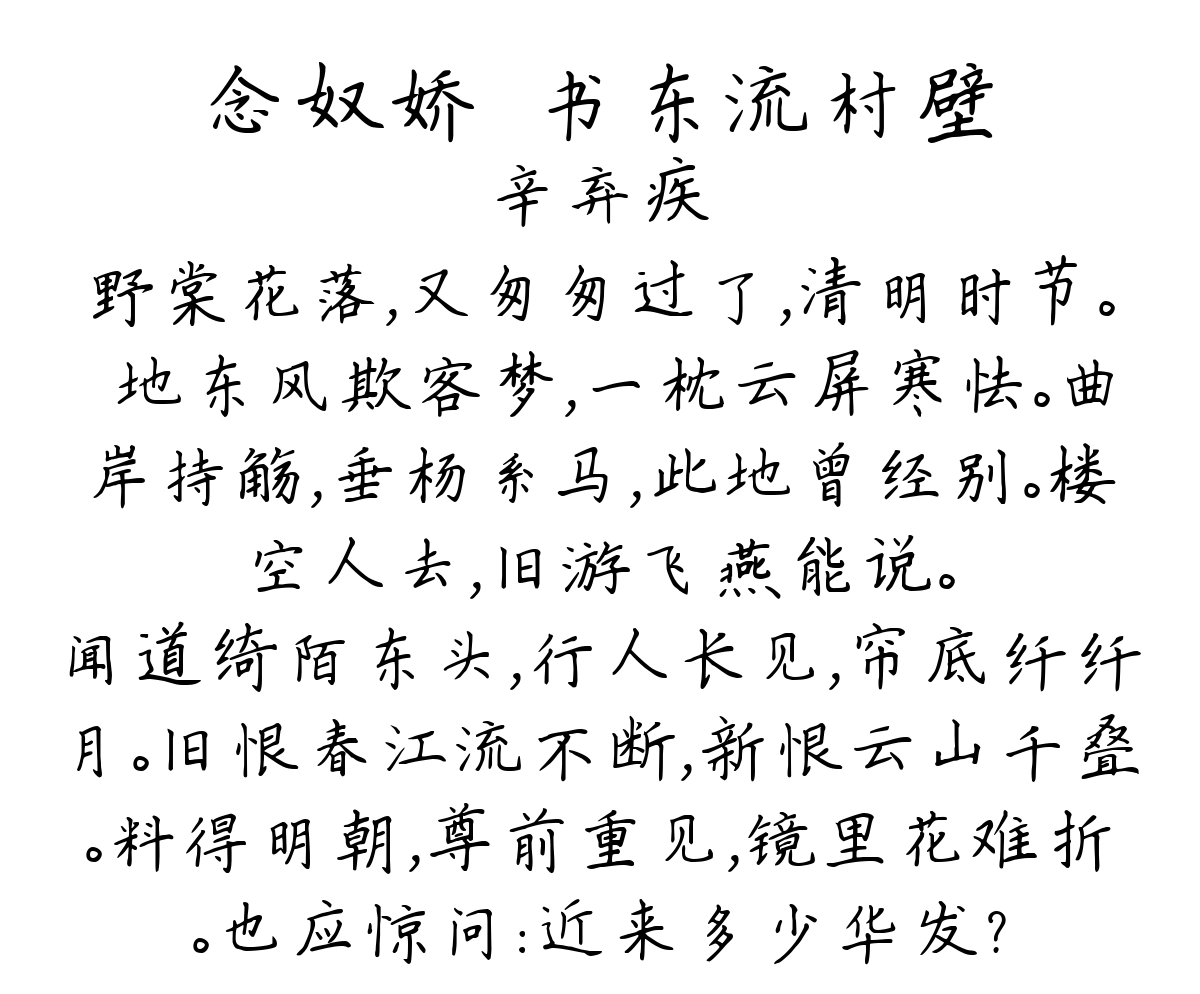 念奴娇 书东流村壁
辛弃疾
野棠花落,又匆匆过了,清明时节。
地东风欺客梦,一枕云屏寒怯。曲
岸持觞,垂杨系马,此地曾经别。楼
空人去,旧游飞燕能说。
闻道绮陌东头,行人长见,帘底纤纤
月。旧恨春江流不断,新恨云山千叠
。料得明朝,尊前重见,镜里花难折
。也应惊问:近来多少华发?